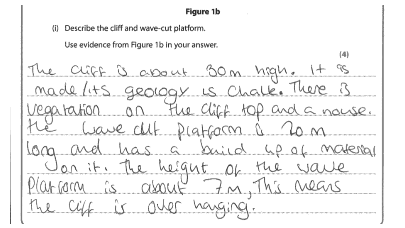 Figure 1b
(i) Describe the cliff and wave-cut platform.
Use evidence from Figure 1b in your answer.
(4)
The cliff is about 30m high. It is
made/its geology is chalk. There is
vegatation on the cliff top and a house.
the wave cut platform is 20m
long and has a build up of material
on it. The height of the wave
platform is about 7m, This means
the cliff is over hanging.